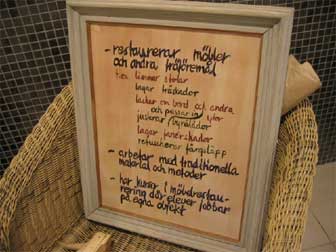 - restaurerar möbler
och andra träföremål
t.ex. limmar stolar
lagar träskador
lackar om bord och andra
och passar in ytor
justerar byrålådor
lagar fanérskador
retuscherar färgsläpp
- arbetar med traditionella
material och metoder
- har kurser i möbelrestau-
rering där elever jobbar
på egna objekt